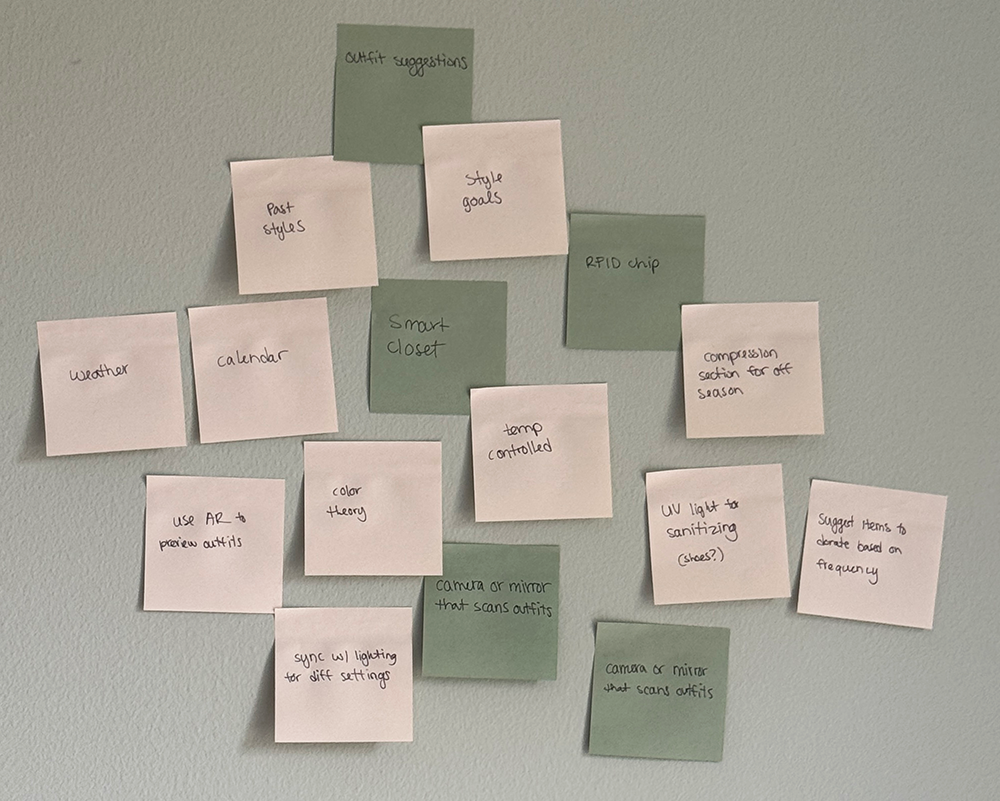 outfit suggestions
Past
styles
style
goals
RFID chip
weather
calendar
Smart
closet
compression
section for off
season
temp
controlled
color
theory
use AR to
preview outfits
UV light for
sanitizing
(shoes?)
Suggest items to
donate based on
frequency
camera or mirror
that scans outfits
sync w/ lighting
for diff settings
camera or mirror
that scans outfits